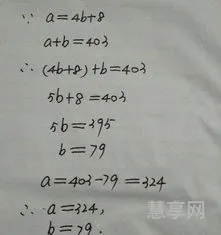 ∵ a=4b+8
a+b=403
∴ (4b+8)+b=403
5b+8=403
5b=395
b=79
a=403-79=324
∴ a=324,
b=79.
慧享网